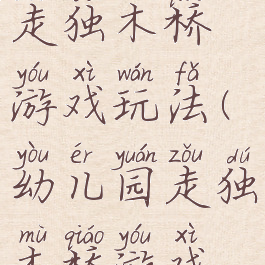 走独木桥
yóu xì wán fǎ
游戏玩法(
yòu ér yuán zǒu dú
幼儿园走独
mù qiáo yóu xì
木桥游戏